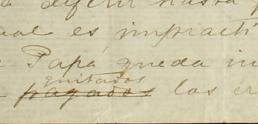 a diferir hasta
ual es impracti
Papá queda in
quitados
pagados los cr